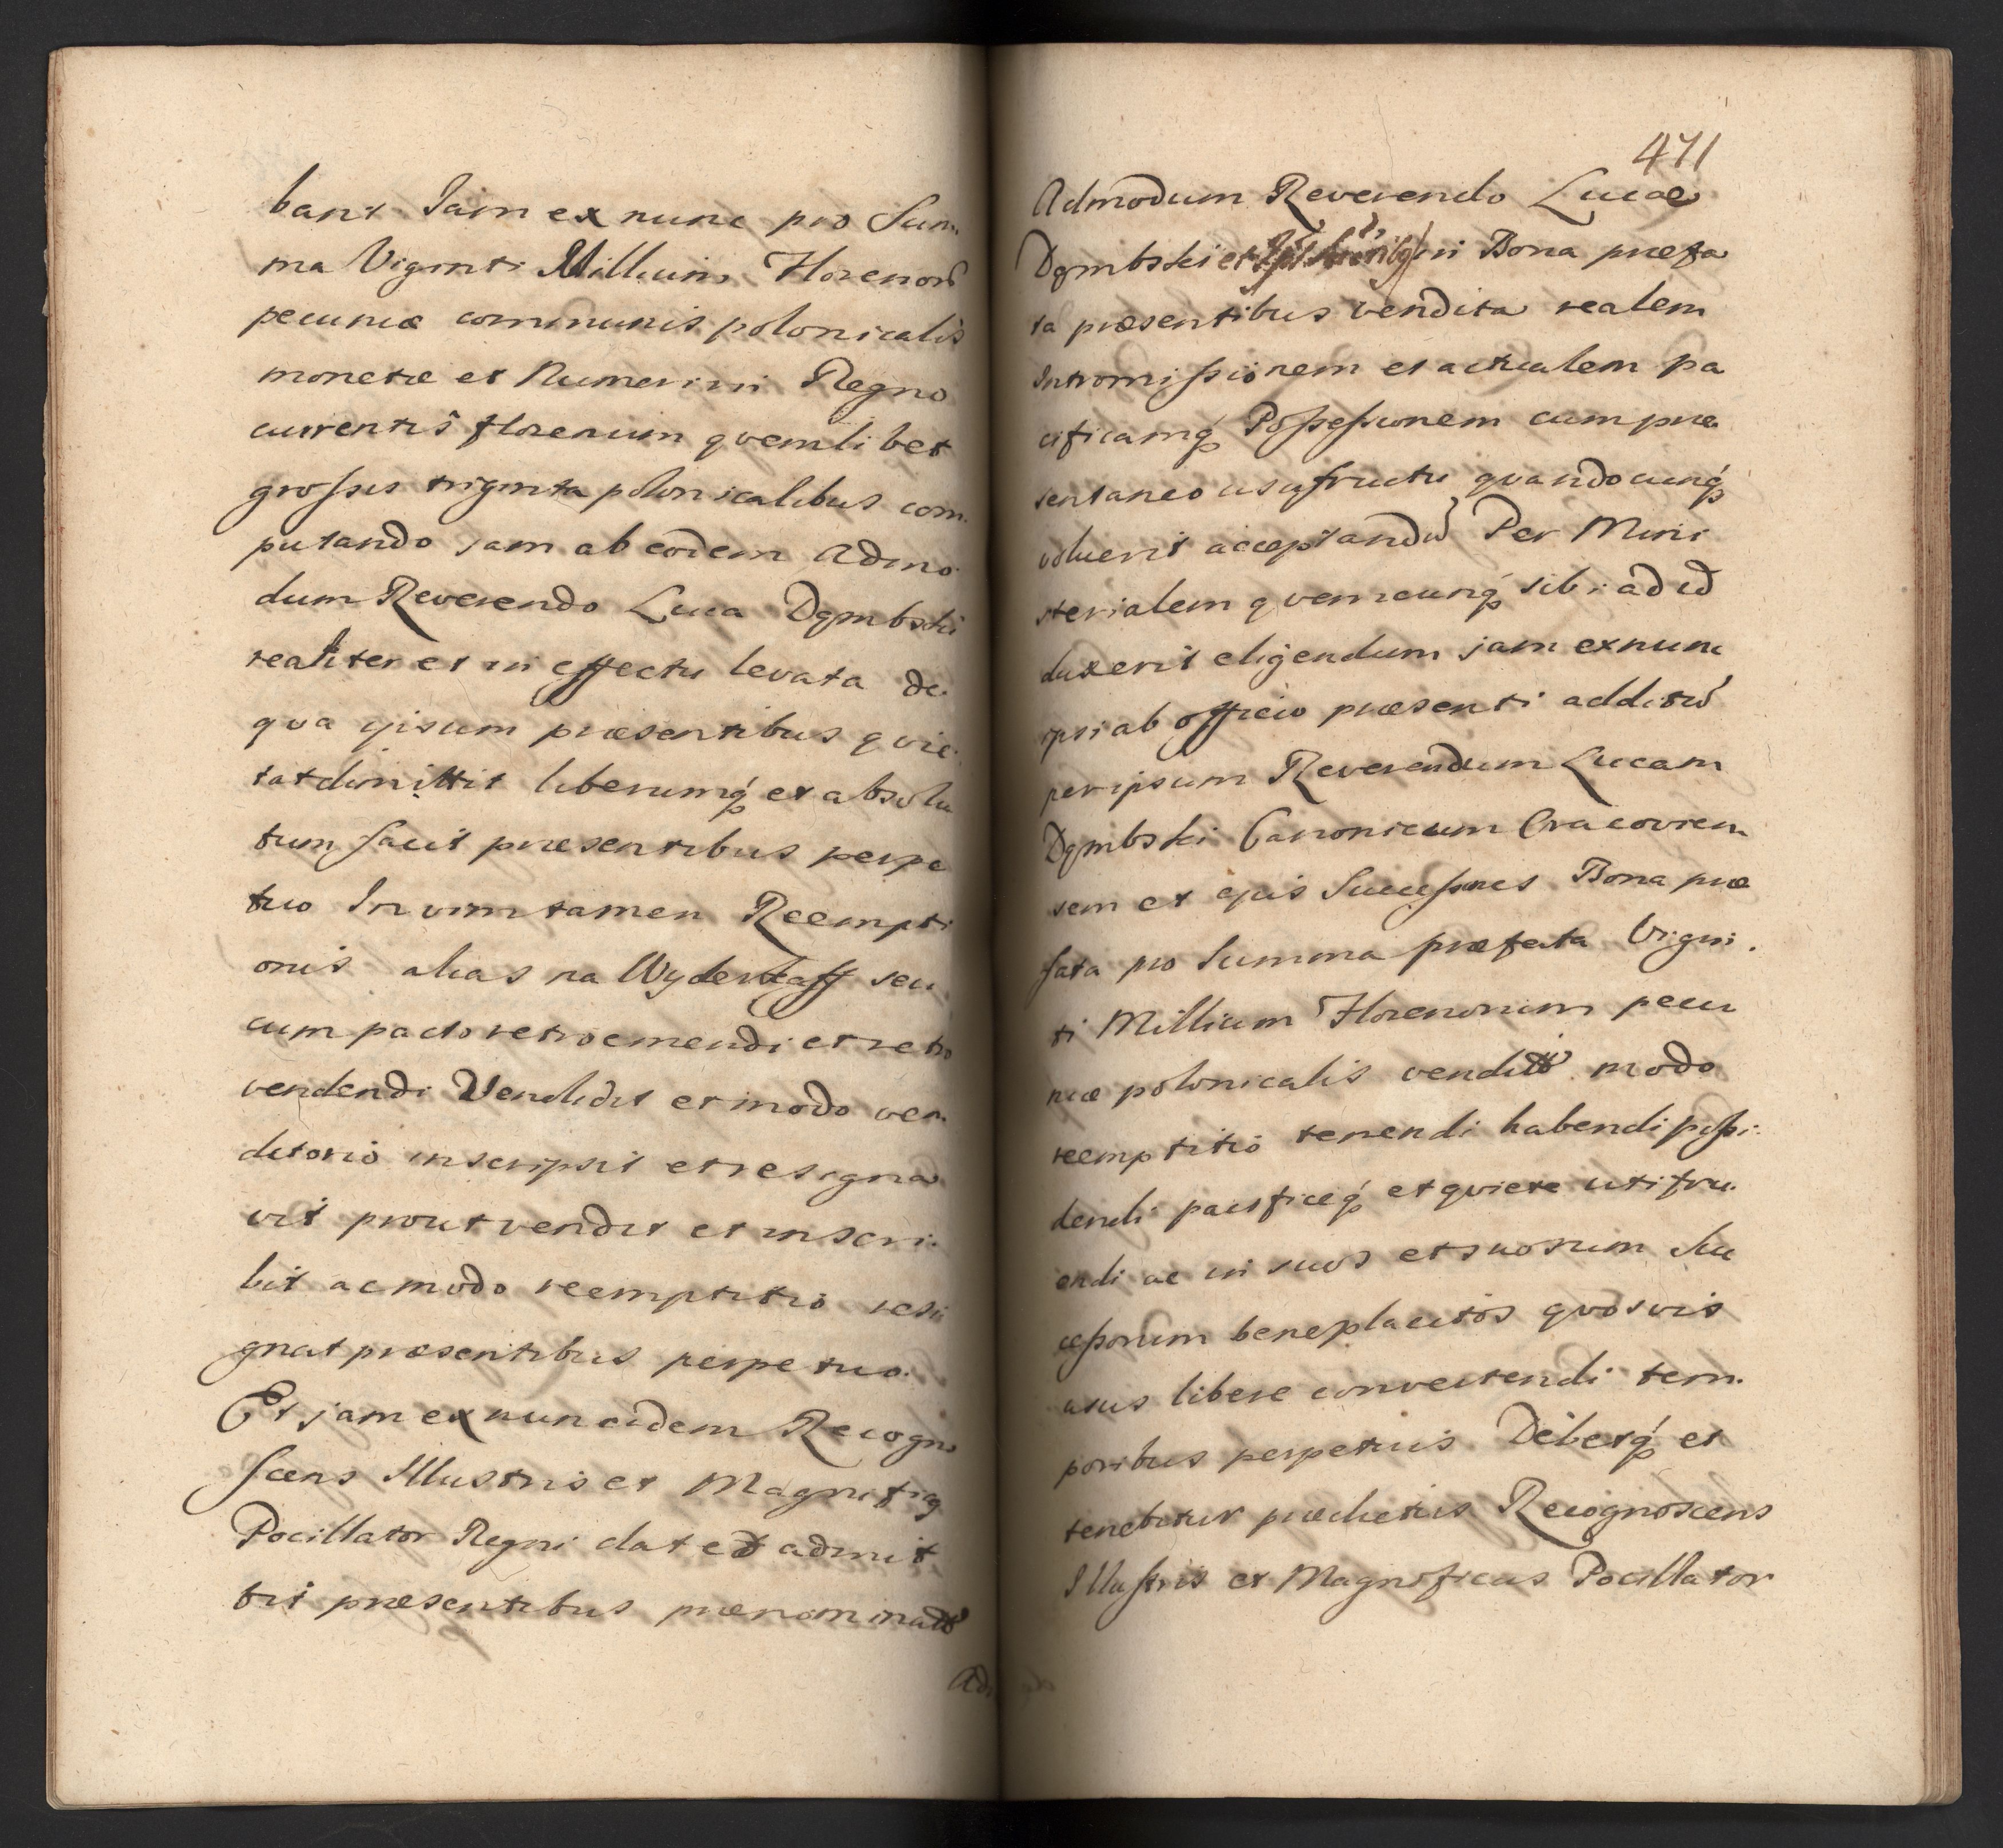 bant Jam ex nunc pro Sum
ma Viginti Millium Florenorũ
pecuniæ communis polonicalis
monetæ et Numeri in Regno
currentis florenum qvemlibet
grossis triginta polonicalibus com
putando jam ab eodem Admo
dum Reverendo Luca Dąmbski
realiter et in effectu levata de
qva ipsum præsentibus qvie
tat dimittit liberumq́ et absolu
tum facit præsentibus perpe
tuo In vim tamen Reempti
onis alias na Wyderkaff seu
cum pacto retroemendi et retro
vendendi Vendidit et modo ven
ditorio inscripsit et resigna
vit prout vendit et inscri
bit ac modo reemptitio resi
gnat præsentibus perpetuo.
Et jam ex nunc eidem Recogno
scens Illustris et Magnificq
Pocillator Regni dat et admit
tit præsentibus prænominato
Ad
471
Admodum Reverendo Lucae
Dąmbski et in Bona præfa
ta præsentibus vendita realem
Intromissionem et actualem pa
cificamq́ Possessionem cum præ
sentaneo usufructu qvandocunq́
voluerit acceptandũ Per Mini
sterialem qvemcunq́ sibi ad id
duxerit eligendum jam ex nunc
ipsi ab officio præsenti additũ
per ipsum Reverendum Lucam
Dąmbski Canonicum Cracovien
sem et ejus Successores Bona præ
fata pro Summa præfata Vigin.
ti Millium Florenorum pecu
niæ polonicalis vendito modo
reemptitio tenendi habendi possi.
dendi pacificeq́ et qviete utifru.
endi ac in suos et suorum Suc
cessorum beneplacitos qvosvis
usus libere convertendi tem.
poribus perpetuis Debetq́ et
tenebitur prædictus Recognoscens
Illustris et Magnificus Pocillator